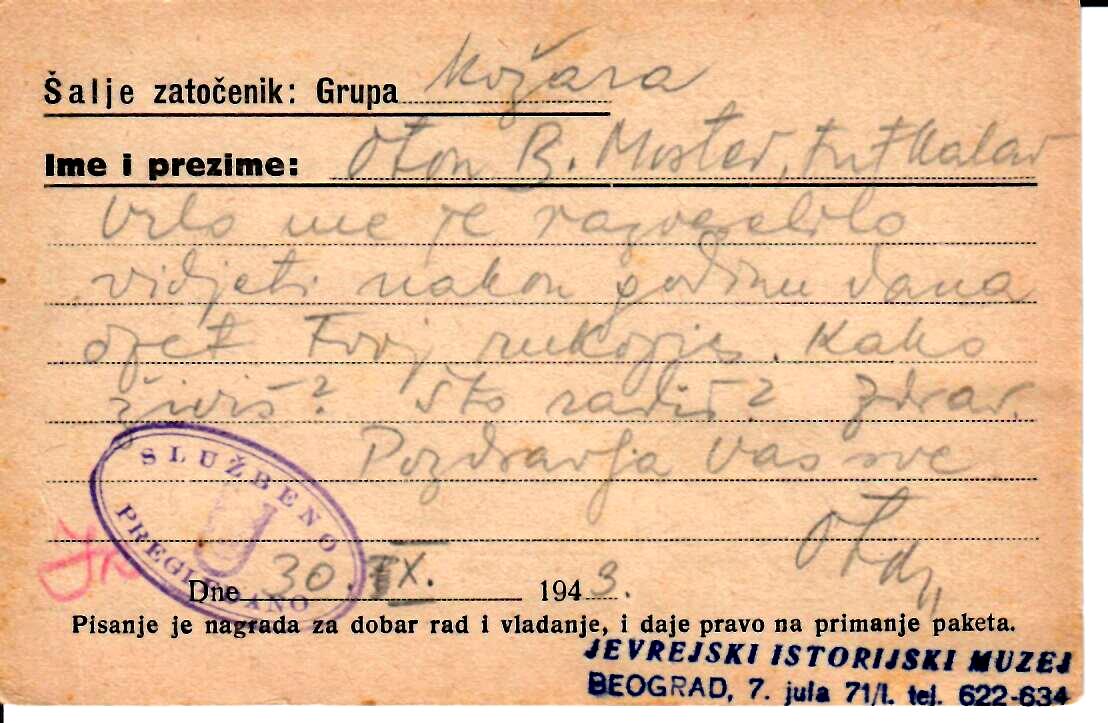 Šalje zatočenik: Grupa Kožara
Ime i prezime: Oton B. Moster, tutkalar
Vrlo me je razveselilo
vidjeti nakon godinu dana
opet Tvoj rukopis. Kako
živiš? Što radiš? Zdrav.
Pozdravlja Vas sve
Oton
SLUŽBENO
U
PREGLEDANO
Dne 30. IX. 1943.
Pisanje je nagrada za dobar rad i vladanje, i daje pravo na primanje paketa.
JEVREJSKI ISTORIJSKI MUZEJ
BEOGRAD, 7. jula 71/I. tel. 622-634